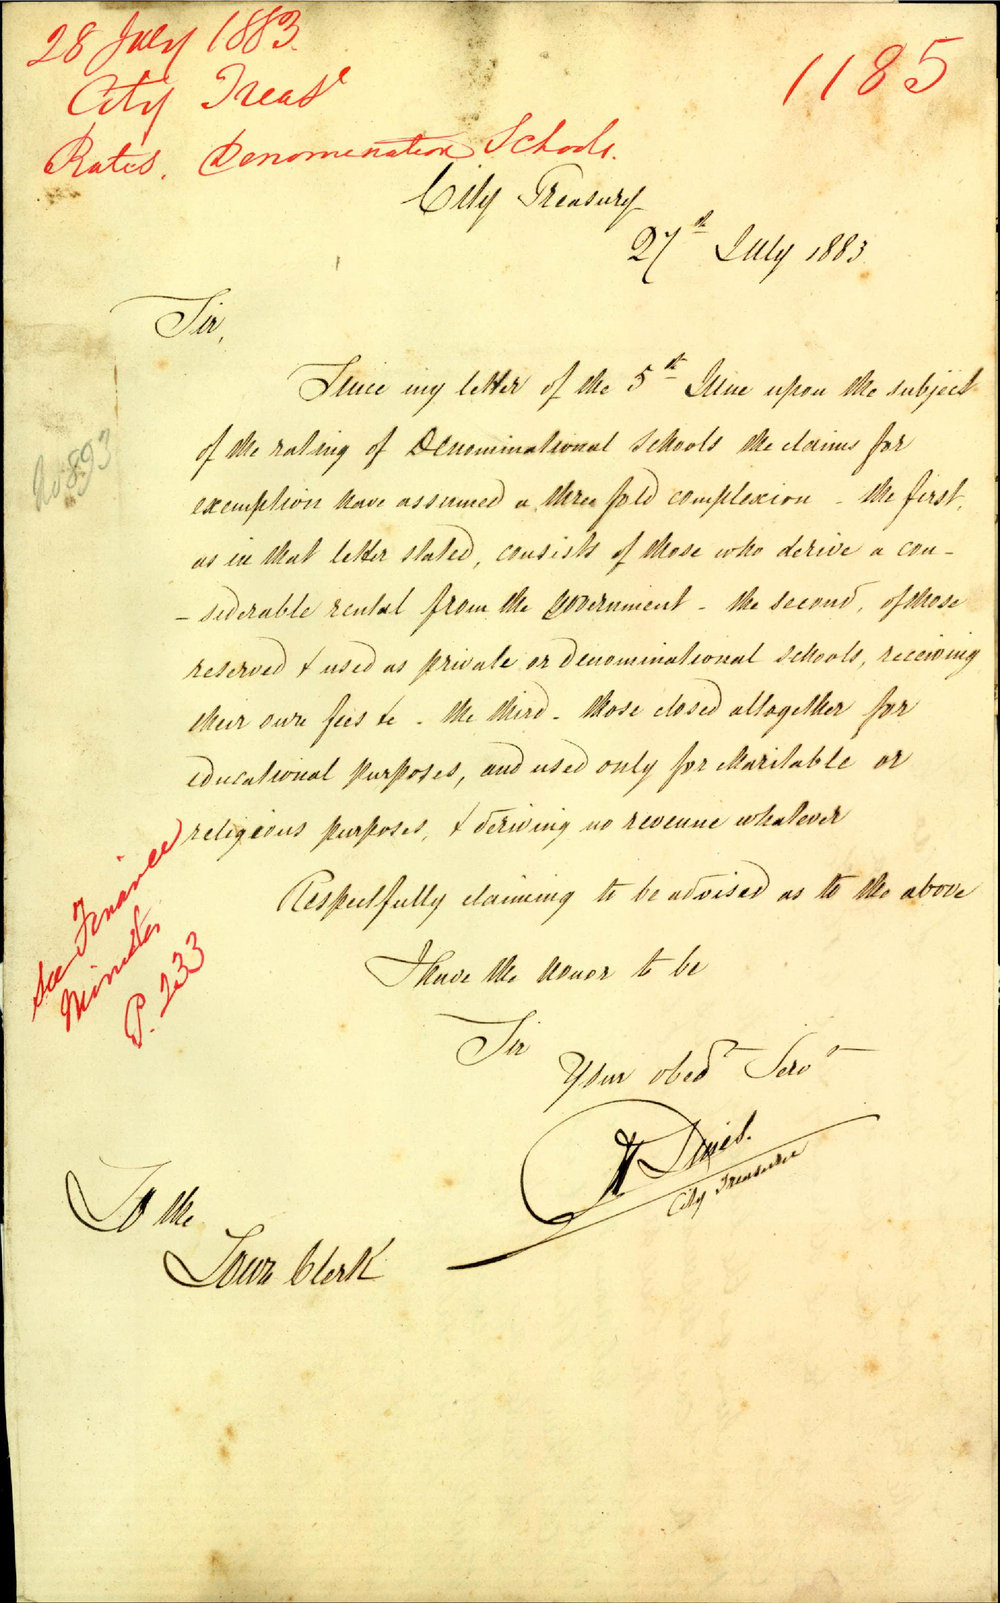 28 July 1883.
1185
City Treasr
Rates. Denomination Schools.
City Treasury
27th July 1883
Sir,
Since my letter of the 5th June upon the subject
of the rating of Denominational Schools the claims for
exemption have assumed a three fold complexion - the first,
as in that letter stated, consists of those who derive a con-
- siderable rental from the Government - the second, of those
reserved & used as private or denominational schools, receiving
their own fees &c - the third - those closed altogether for
educational purposes, and used only for charitable or
religious purposes, & deriving no revenue whatever
Respectfully claiming to be advised as to the above
I have the honor to be
Sir
Your obedt Servt
City Treasurer
To the
Town Clerk
No 893
See Finance
Minutes
P. 233